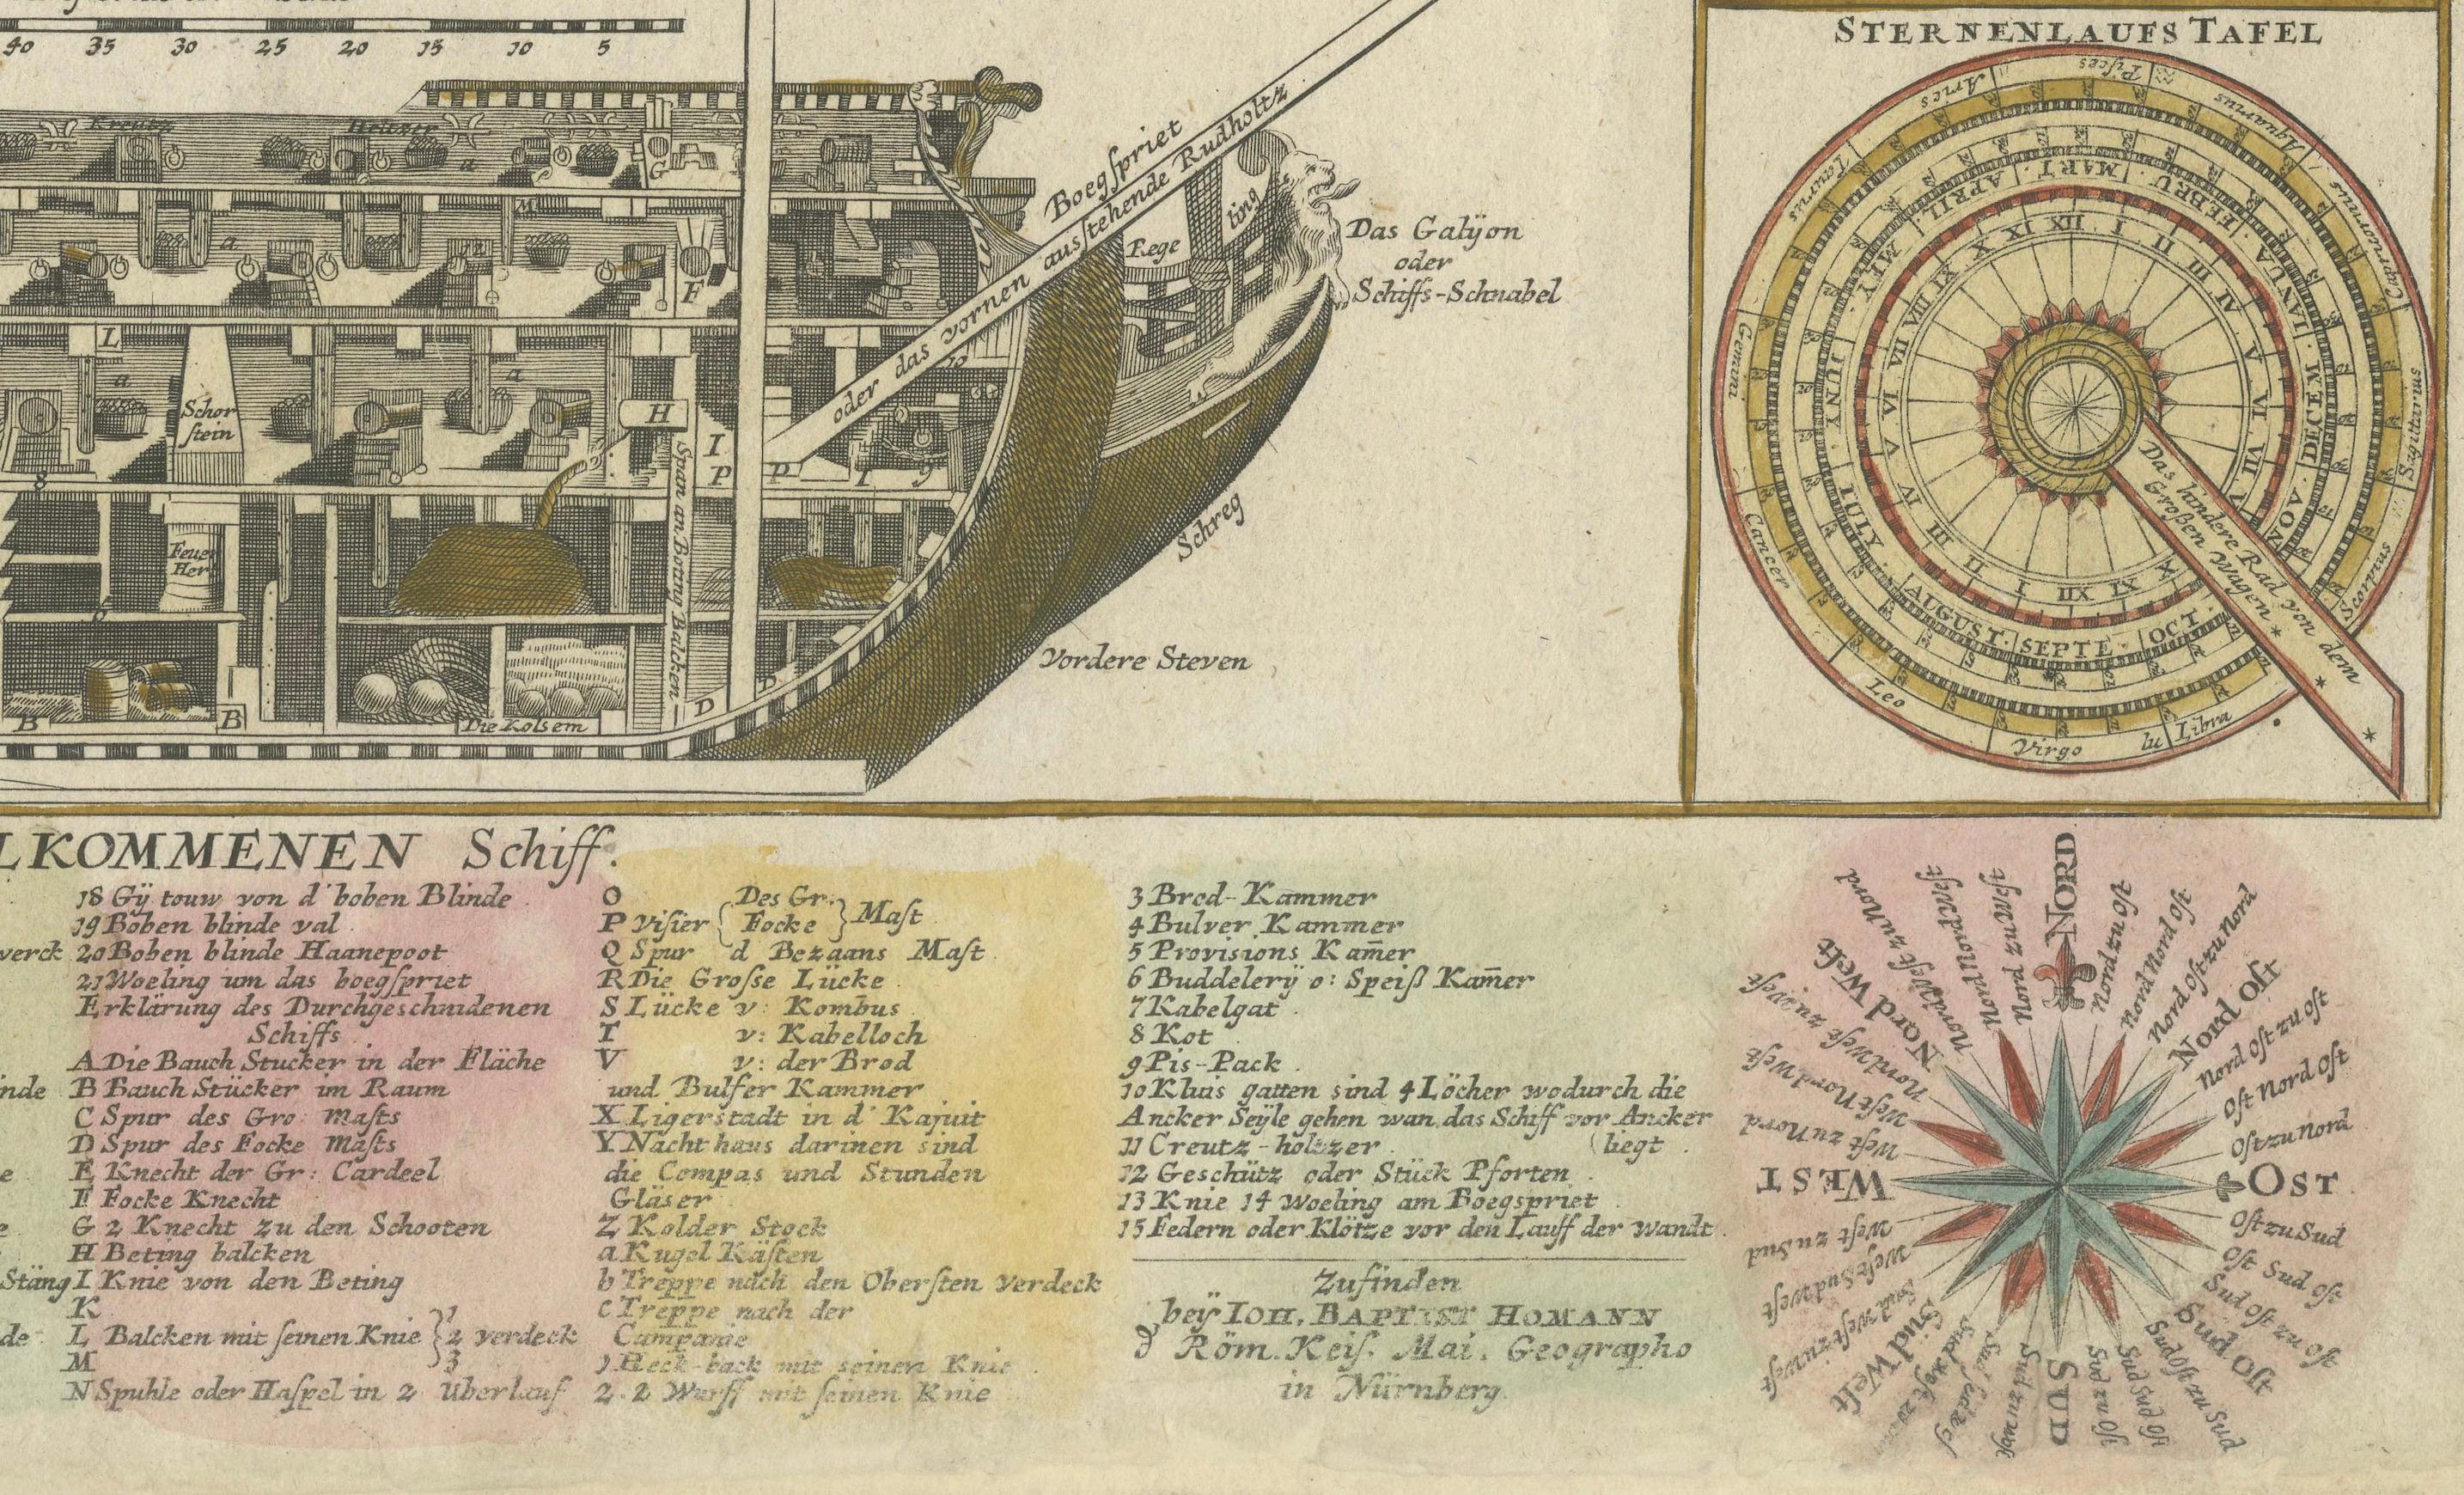 40 35 30 25 20 15 10 5
Kreutz
a
G
M
a
F
Boegſpriet
oder das vornen ausſtehende Rudholtz
Rege
ling
Das Galÿon
oder
Schiffs-Schnabel
L
a
a
Schor
ſtein
H
I
P
P
8
9
Feuer
Her
6
Span an Boting Balcken
Schreg
Vordere Steven
B
B
D
D
Die Kolsem
STERNENLAUFS TAFEL
Piſces
Aquarius
Capricornus
Sagittarius
Scorpius
Libra
Virgo
Leo
Cancer
Gemini
Taurus
Aries
MART
FEBRU
IANUA
DECEM
NOV.
OCT.
SEPTE
AUGUST.
IULY
IUNY
MEY
APRIL
Das hindere Rad von dem
Großen Wagen
LKOMMENEN Schiff.
18 Gÿ touw von d' boben Blinde
19 Boben blinde val
verck 20 Boben blinde Haanepoot
21 Woeling um das boegſpriet
Erklärung des Durchgeschnidenen
Schiffs
A Die Bauch Stucker in der Fläche
nde B Bauch Stücker im Raum
C Spur des Gro: maſts
D Spur des Focke Maſts
e E Knecht der Gr: Cardeel
F Focke Knecht
e G 2 Knecht zu den Schooten
H Beting balcken
Stäng I Knie von den Beting
K 1
de L Balcken mit ſeinen Knie } 2 verdeck
M 3
N Spuhle oder Haſpel in 2 Uberlauf
O Des Gr.
P Viſier { Focke } Maſt
Q Spur d Bezaans Maſt
R Die Groſse Lücke
S Lücke v: Kombus
T v: Kabelloch
V v: der Brod
und Bulfer Kammer
X Ligerstadt in d' Kajuit
Y Nacht haus darinen sind
die Compas und Stunden
Gläser
Z Kolder Stock
a Kugel Käſten
b Treppe nach den Oberſten Verdeck
c Treppe nach der
Campanie
1 Heck-back mit seinen Knie
2. 2 Wurff mit ſeinen Knie
3 Brod-Kammer
4 Bulver Kammer
5 Provisions Kam̄er
6 Buddelerÿ o: Speiß Kam̄er
7 Kabelgat
8 Kot
9 Pis-Pack
10 Kluis gatten sind 4 Löcher wodurch die
Ancker Seÿle gehen wan das Schiff vor Ancker
11 Creutz-höltzer (liegt
12 Geschütz oder Stück Pforten
13 Knie 14 Woeling am Boegspriet
15 Federn oder Klötze vor den Lauff der Wandt.
Zufinden
beÿ IOH. BAPTIST HOMANN
Röm. Keiſ. Mai. Geographo
in Nürnberg.
NORD
Nord zu Oſt
Nord Nord Oſt
Nord Oſt zu Nord
Nord Oſt
Nord Oſt zu Oſt
Oſt Nord Oſt
Oſt zu Nord
OST
Oſt zu Sud
Oſt Sud Oſt
Sud Oſt zu Oſt
Sud Oſt
Sud Oſt zu Sud
Sud Sud Oſt
Sud zu Oſt
SUD
Sud Weſt
Sud weſt zu weſt
Weſt Sud Weſt
Weſt zu Sud
WEST
Weſt zu Nord
Weſt Nord Weſt
Nord Weſt zu Weſt
Nord Weſt
Nord Weſt zu Nord
Nord Nord Weſt
Nord zu Weſt